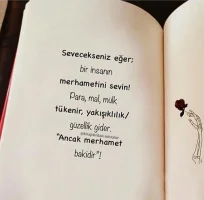 Sevecekseniz eğer;
bir insanın
merhametini sevin!
Para, mal, mülk
tükenir, yakışıklılık/
güzellik gider.
"Ancak merhamet
bakidir"!